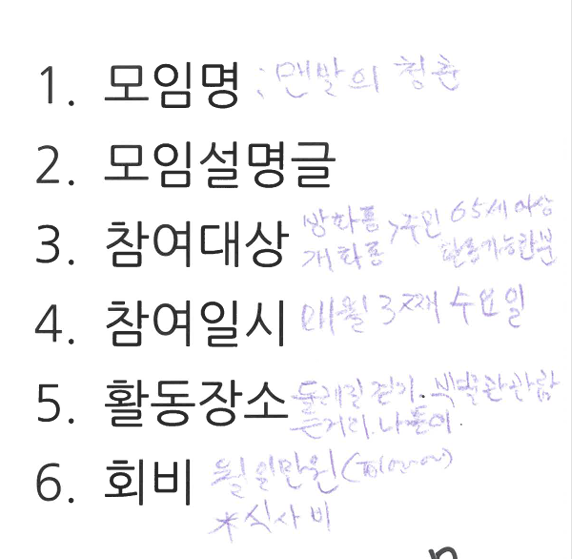 1. 모임명 : 맨발의 청춘
2. 모임설명글
3. 참여대상 방화동 개화동 > 주민 65세 이상 활동가능한분
4. 참여일시 매월 3째 수요일
5. 활동장소 둘레길 걷기. 박물관관람
먼거리.나들이.
6. 회비 월 일만원
*식사비